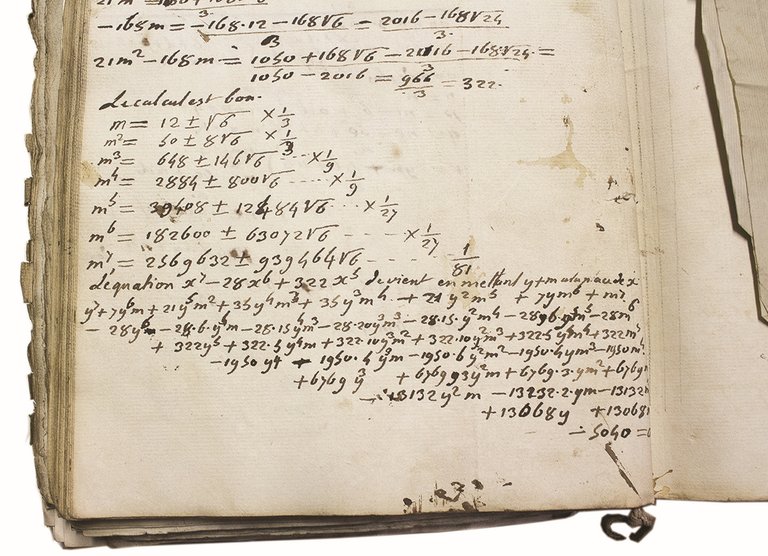 -168m = -168·12 - 168√6 = 2016 - 168√24
3 3
21m² - 168m = 1050 + 168√6 - 2016 - 168√24 =
3
1050 - 2016 = 966 = 322
3
le calcul est bon.
m = 12 ± √6 × 1/3
m² = 50 ± 8√6 × 1/3
m³ = 648 ± 146√6 ... × 1/9
m⁴ = 2884 ± 800√6 ... × 1/9
m⁵ = 39408 ± 12484√6 ... × 1/27
m⁶ = 182600 ± 63072√6 ... × 1/27
m⁷ = 2569632 ± 939464√6 .... 1/81
l'equation x⁷ - 28x⁶ + 322x⁵ devient en mettant y + m à la place de x
y⁷ + 7y⁶m + 21y⁵m² + 35y⁴m³ + 35y³m⁴ + 21y²m⁵ + 7ym⁶ + m⁷
- 28y⁶ - 28·6·y⁵m - 28·15y⁴m² - 28·20y³m³ - 28·15·y²m⁴ - 28·6·ym⁵ - 28m⁶
+ 322y⁵ + 322·5y⁴m + 322·10y³m² + 322·10y²m³ + 322·5y m⁴ + 322m⁵
- 1950y⁴ - 1950·4y³m - 1950·6y²m² - 1950·4ym³ - 1950m⁴
+ 6769y³ + 6769·3y²m + 6769·3·ym² + 6769
- 13132y²m - 13132·2·ym - 13132
+ 13068y + 13068
- 5040 =